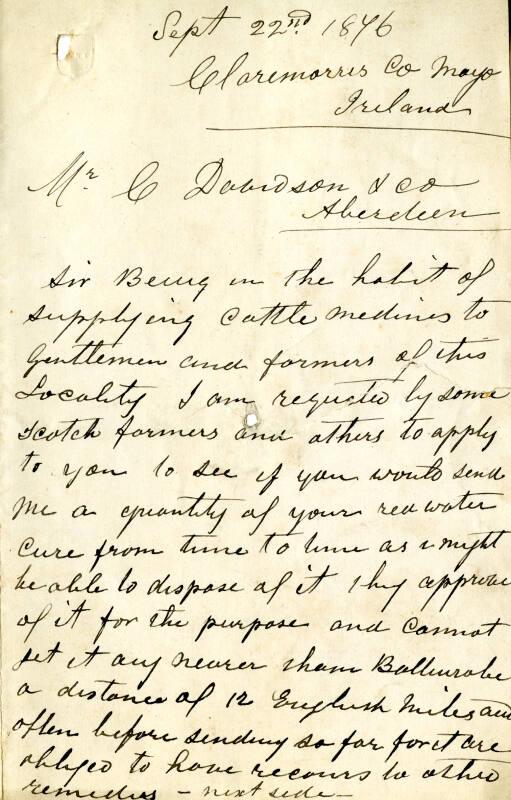 Sept 22nd 1876
Claremorris Co Mayo
Ireland
Mr C Davidson & co
Aberdeen
Sir Being in the habit of
supplying Cattle medines to
Gentlemen and farmers of this
Locality I am requested by some
Scotch farmers and others to apply
to you to see if you would send
me a quantity of your red water
Cure from time to time as I might
be able to dispose of it they approve
of it for the purpose and Cannot
get it any nearer than Ballinrobe
a distance of 12 English Miles and
often before sending so far for it are
obliged to have recours to other
remedies - next side -